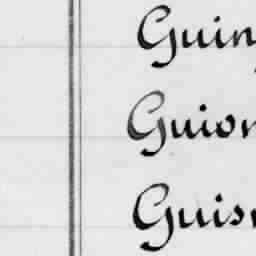 Guin
Guion
Guis